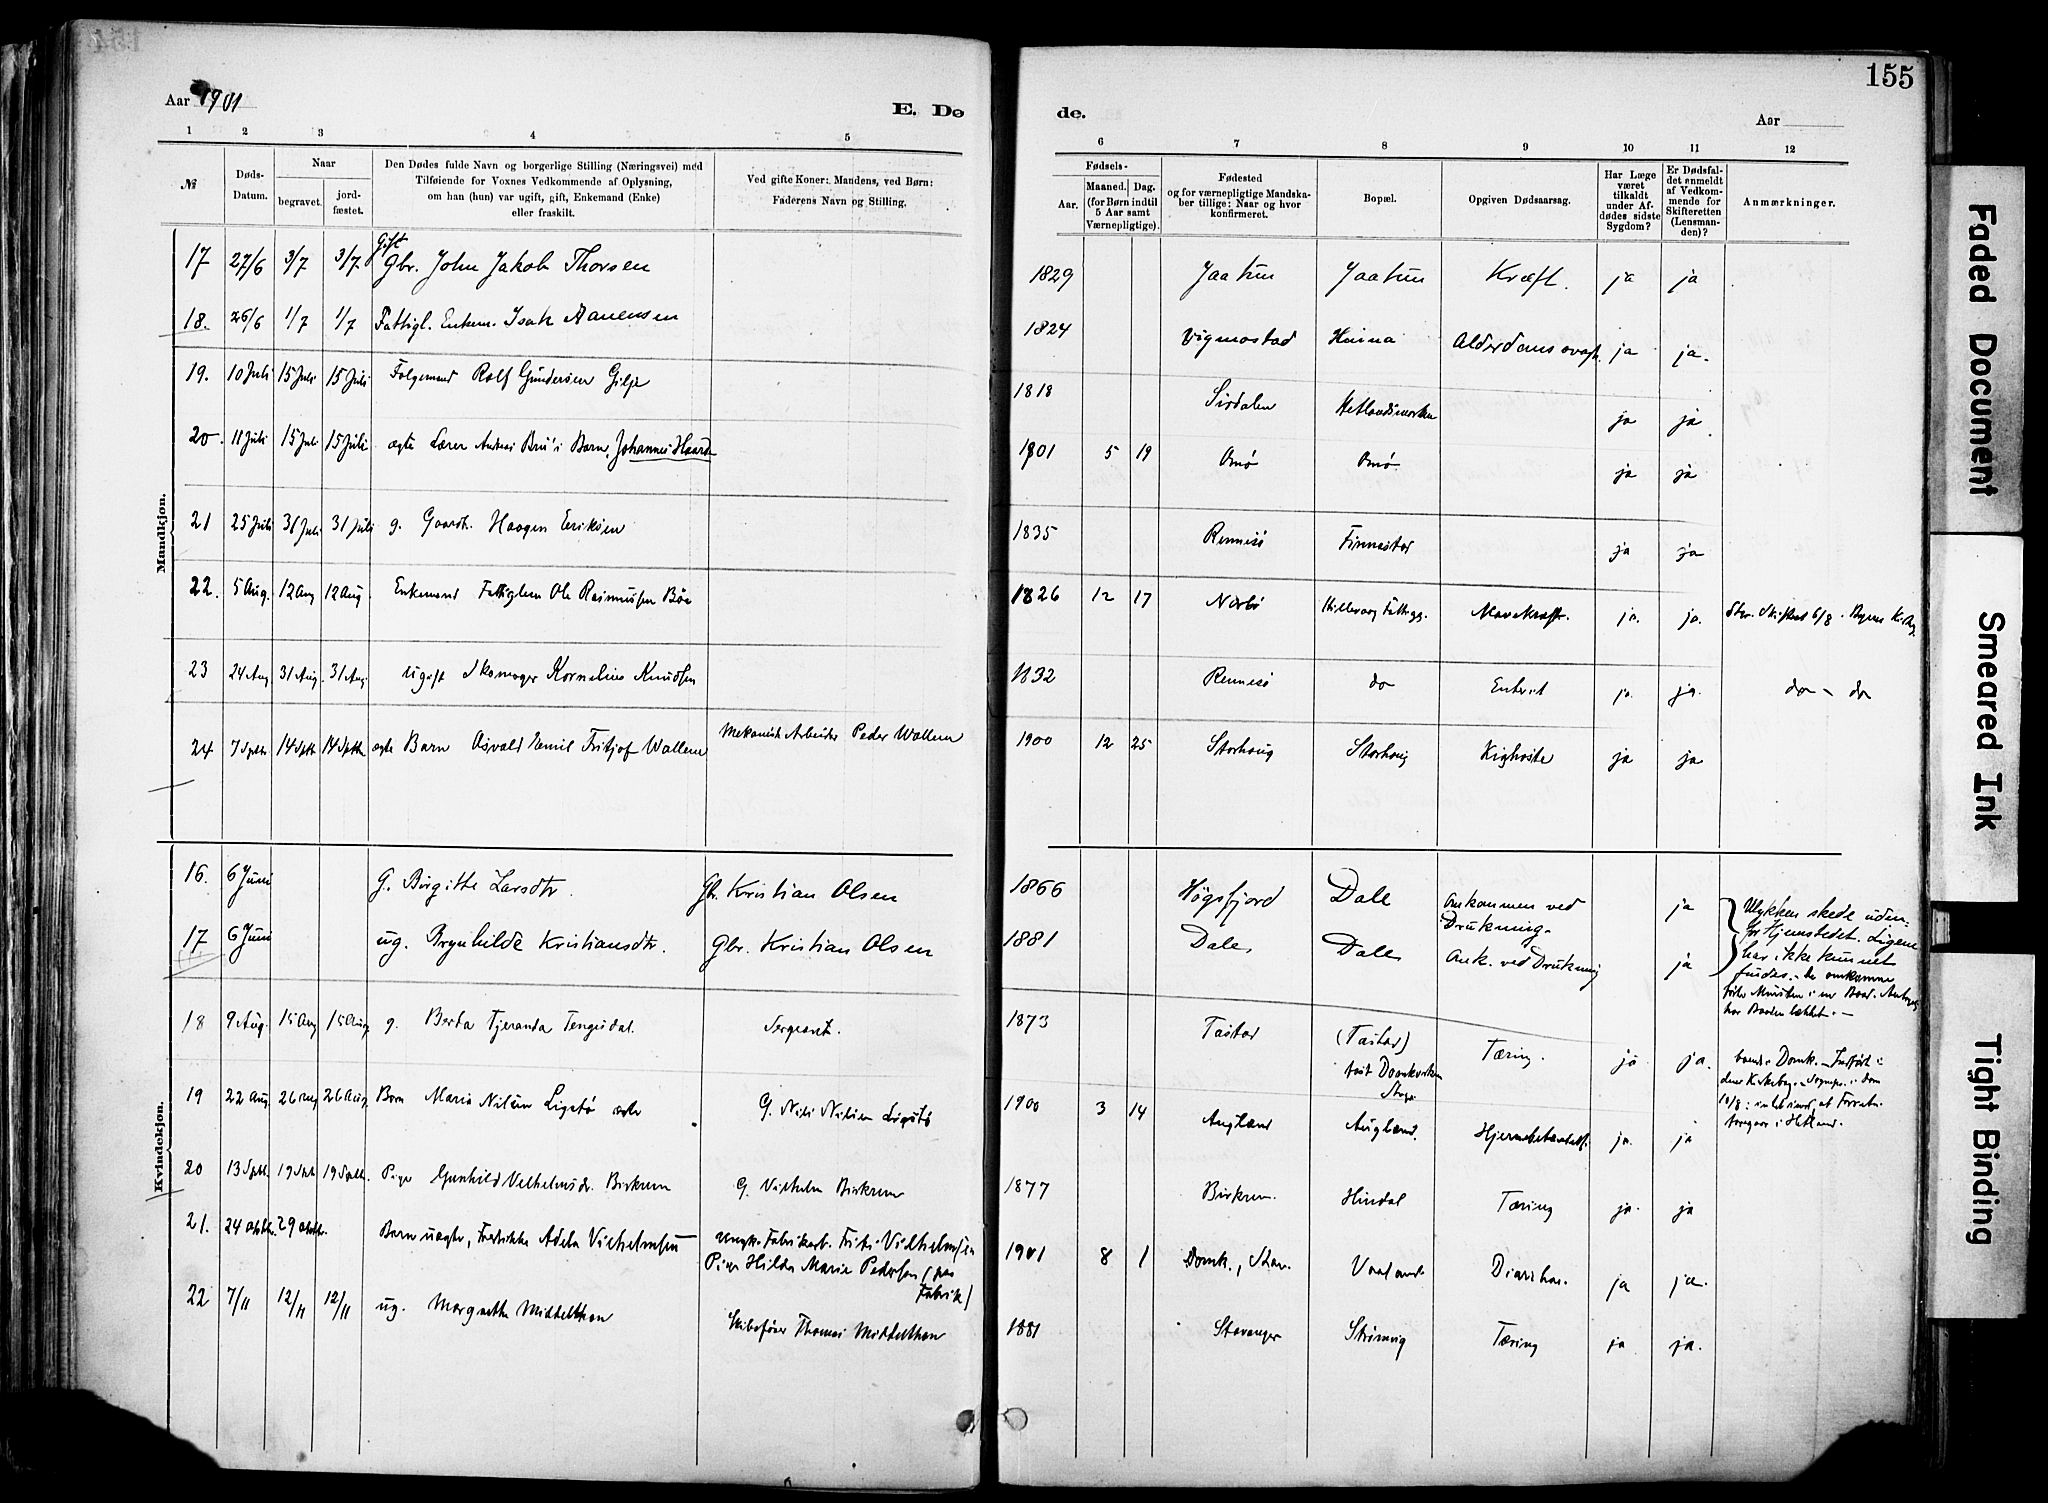 155
Aar 1901
E. Dø
de.
Aar
1 2 3 4 5 6 7 8 9 10 11 12
№
Døds-
Datum.
Naar
begravet.
jord-
fæstet.
Den Dødes fulde Navn og borgerlige Stilling (Næringsvei) med
Tilføiende for Voxnes Vedkommende af Oplysning,
om han (hun) var ugift, gift, Enkemand (Enke)
eller fraskilt.
Ved gifte Koner: Mandens, ved Børn:
Faderens Navn og Stilling.
Fødsels-
Aar.
Maaned. Dag.
(for Børn indtil
5 Aar samt
Værnepligtige).
Fødested
og for værnepligtige Mandska-
ber tillige: Naar og hvor
konfirmeret.
Bopæl.
Opgiven Dødsaarsag.
Har Læge
været
tilkaldt
under Af-
dødes sidste
Sygdom?
Er Dødsfal-
det anmeldt
af Vedkom-
mende for
Skifteretten
(Lensman-
den)?
Anmærkninger.
Mandkjøn.
Gift
17 27/6 3/7 3/7 Gbr. John Jakob Thorsen 1829 Jaatun Jaatun Kræft. ja ja
18. 26/6 1/7 1/7 Fattigl. Enkem. Isak Aanensen 1824 Vigmostad ja ja.
19. 10 Juli 15 Juli 15 Juli Rolf Gundersen Gilje 1818 Sirdalen Hetlandsmarken ja ja
20. 11 Juli 15 Juli 15 Juli ægte Lærer Andreas Bru's Barn, Johannes 1901 5 19 Omø Omø ja ja
21 25 Juli 31 Juli 31 Juli g. Gaardb. Haagen Eriksen 1835 Rennesö Finnestad ja ja
22. 5 Aug. 12 Aug 12 Aug Enkemand Fattiglem Ole Rasmussen Bøe 1826 12 17 Nærbö ja. ja.
23 24 Aug 31 Aug. 31 Aug. ugift Skomager Kornelius Knudsen 1832 Rennesö do ja. ja. do - do
24 7 Septb 14 Septb 14 Septb ægte Barn Osvald Emil Fritjof Wallem Mekanisk Arbeider Peder Wallem 1900 12 25 Storhaug Storhaug Kighoste ja ja
Kvindekjøn.
16. 6 Juni G. Birgitte Larsdtr. Gbr. Kristian Olsen 1866 Högsfjord Dale Omkommen ved
Drukning. ja
17 6 Juni ug. Brynhilde Kristiansdtr. Gbr. Kristian Olsen 1881 Dale Dale Omk. ved Drukning ja
Ulykken skede uden-
for Hjemstedet. Ligene
har ikke kunnet
findes. - De omkomne
18 9 Aug. 15 Aug 15 Aug g. Berta Tjeranda Tengesdal. Sergeant. 1873 Tastad (Tastad)
Tæring. ja ja.
19 22 Aug. 26 Aug 26 Aug. Barn Maria Nilsen Ligstø G. Nils Nilsen Ligstø 1900 3 14 Augland Augland. ja. ja
20 13 Septb. 19 Septb 19 Septb. Pige Gunhild Vilhelmsdr. Birkrem G. Vilhelm Birkrem 1877 Birkrem. Hindal Tæring ja. ja
21. 24 oktbr. 29 oktbr. Barn uægte, Fredrikke Adela Vilhelmsen Ungk. Fabrikarb. Frits Vilhelmsen
Pige Hilda Marie Pedersen (paa
Fabrik) 1901 8 1 Domk., Stav. Vaaland Diarrhoe. ja ja.
22 7/11 12/11 12/11 ug. Margrethe Middelthon Skibsfører Thomas Middelthon 1881 Stavanger Strømvig Tæring ja ja.
Faded Document
Smeared Ink
Tight Binding